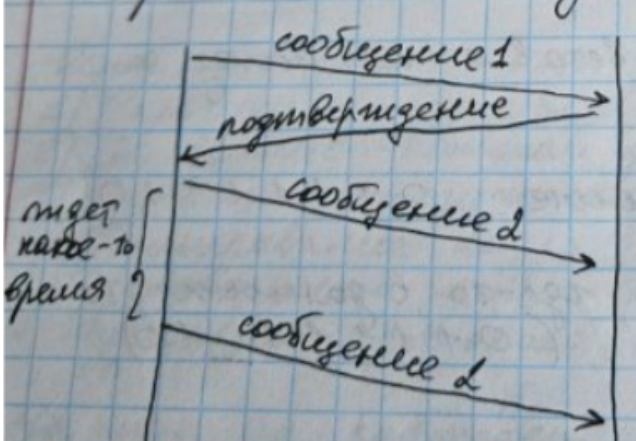 сообщение 1
подтверждение
сообщение 2
ждет
какое-то
время
сообщение 2